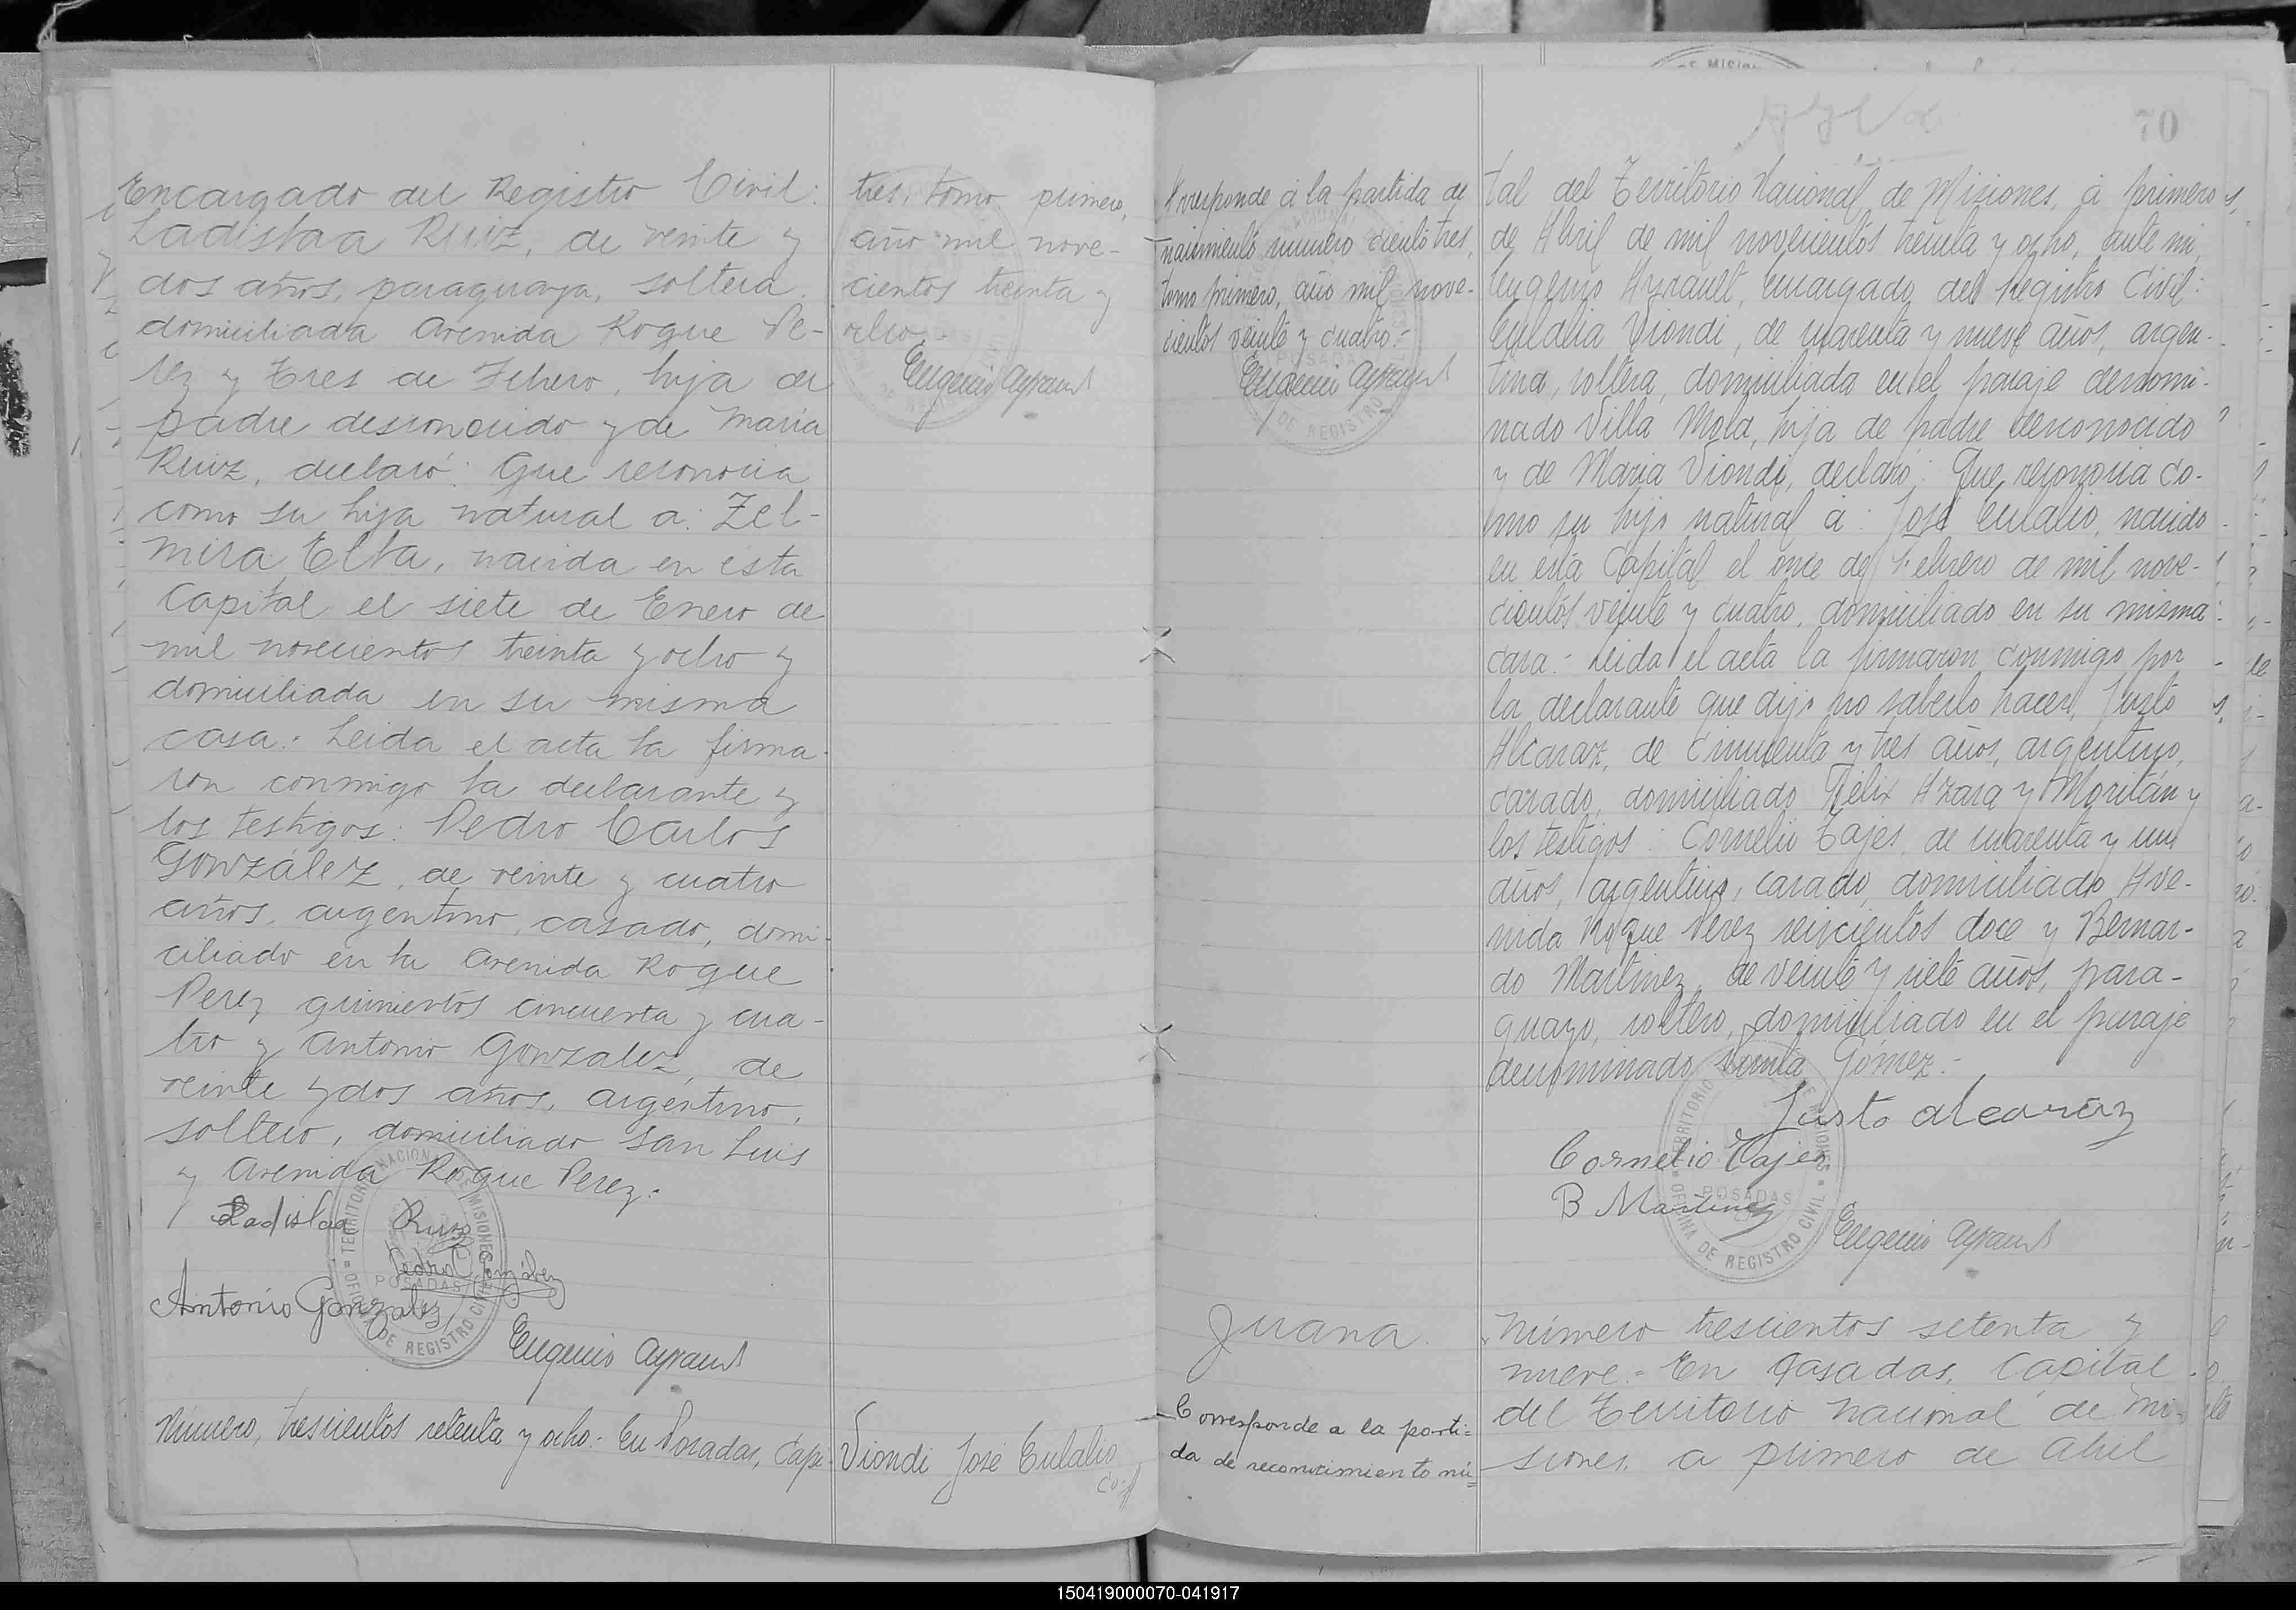 Encargado del Registro Civil:
Ladislaa Ruiz, de veinte y
dos años, paraguaya, soltera,
domiciliada Avenida Roque Pe-
rez y Tres de Febrero, hija de
padre desconocido y de Maria
Ruiz, declaró: Que reconocia
como su hija natural a: Zel-
mira Elba, nacida en esta
Capital el siete de Enero de
mil novecientos treinta y ocho y
domiciliada en su misma
casa.- Leida el acta la firma-
ron conmigo la declarante y
los testigos: Pedro Carlos
González, de veinte y cuatro
años, argentino, casado, domi-
ciliado en la Avenida Roque
Perez quinientos cincuenta y cua-
tro y Antonio Gonzalez, de
veinte y dos años, argentino,
soltero, domiciliado San Luis
y Avenida Roque Perez.-
Ladislaa Ruiz
Pedro C González
Antonio Gonzalez
Eugenio Ayrault
TERRITORIO NACIONAL DE MISIONES
POSADAS
OFICINA DE REGISTRO CIVIL
Número, trescientos setenta y ocho.- En Posadas, Capi-
tres, tomo primero,
año mil nove-
cientos treinta y
ocho.-
Eugenio Ayrault
Viondi José Eulalio
Co-//
//rresponde á la partida de
nacimiento numero ciento tres,
tomo primero, año mil nove-
cientos veinte y cuatro.-
Eugenio Ayrault
Juana
Corresponde a la parti=
da de reconocimiento nú=
70
tal del Territorio Nacional de Misiones, á primero
de Abril de mil novecientos treinta y ocho, ante mi,
Eugenio Ayrault, Encargado del Registro Civil:
Eulalia Viondi, de cuarenta y nueve años, argen-
tina, soltera, domiciliada en el paraje denomi-
nado Villa Mola, hija de padre desconocido
y de Maria Viondi, declaró: Que reconocia co-
mo su hijo natural á: José Eulalio, nacido
en esta Capital el once de Febrero de mil nove-
cientos veinte y cuatro, domiciliado en su misma
casa.- Leida el acta la firmaron conmigo por
la declarante que dijo no saberlo hacer, Justo
Alcaraz, de cincuenta y tres años, argentino,
casado, domiciliado Félix Azara y Moritán y
los testigos: Cornelio Tajes, de cuarenta y un
años, argentino, casado, domiciliado Ave-
nida Roque Perez seiscientos doce y Bernar-
do Martinez, de veinte y siete años, para-
guayo, soltero, domiciliado en el paraje
denominado Gómez.-
Justo alcaraz
Cornelio Tajes
B Martinez
Eugenio Ayrault
TERRITORIO DE MISIONES
POSADAS
OFICINA DE REGISTRO CIVIL
Número trescientos setenta y
nueve.- En Posadas, Capital
del Territorio Nacional de Mi-
siones, a primero de Abril
150419000070-041917